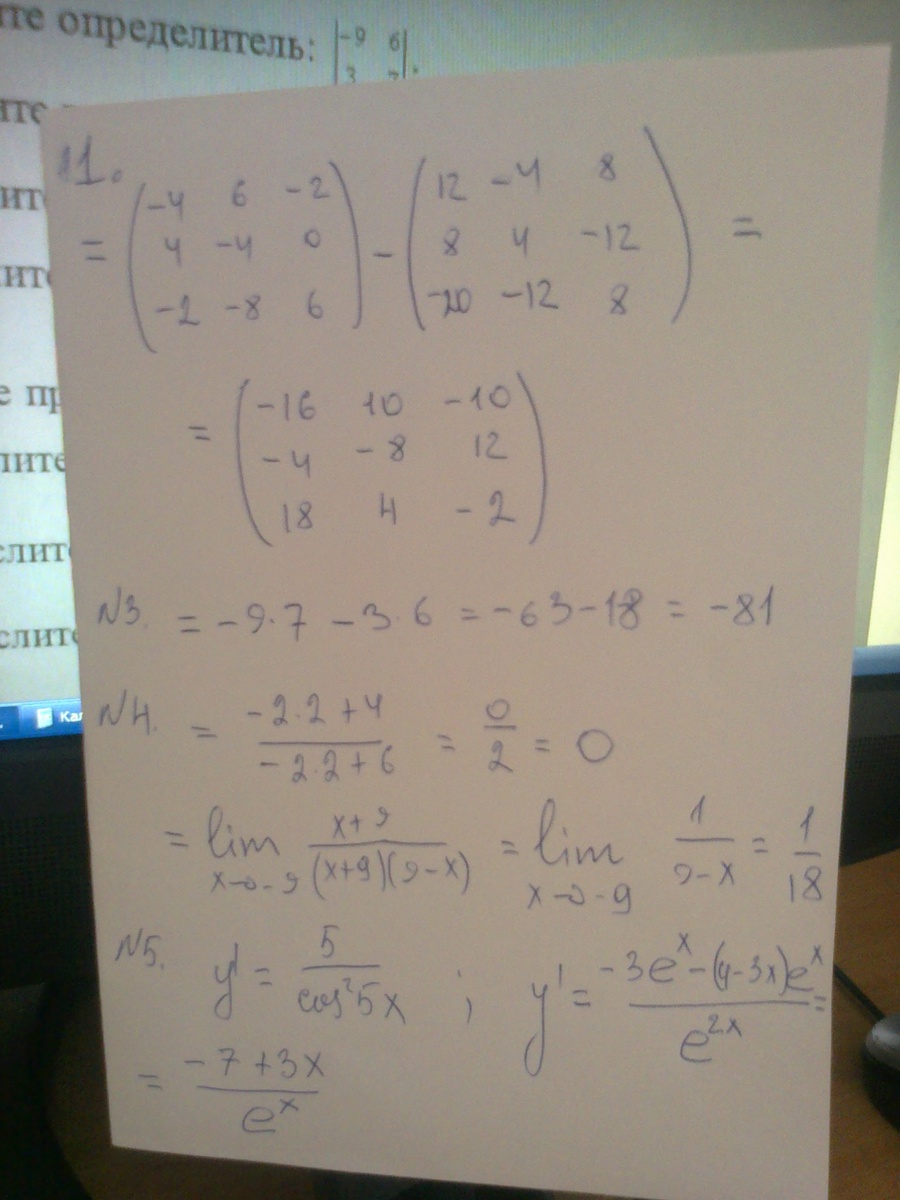 те определитель: |-9 6|.
|3 7|
ите
ите
ите
е пр
лите
слите
слите
Кал
11.
= (-4 6 -2) - (12 -4 8) =
(4 -4 0) (8 4 -12)
(-2 -8 6) (-20 -12 8)
= (-16 10 -10)
(-4 -8 12)
(18 4 -2)
N3. = -9·7 -3·6 = -63-18 = -81
N4. = (-2·2+4)/(-2·2+6) = 0/2 = 0
= lim x→-9 (x+9)/((x+9)(9-x)) = lim x→-9 1/(9-x) = 1/18
N5. y' = 5/cos²5x ; y' = (-3eˣ-(4-3x)eˣ)/e²ˣ =
= (-7+3x)/eˣ